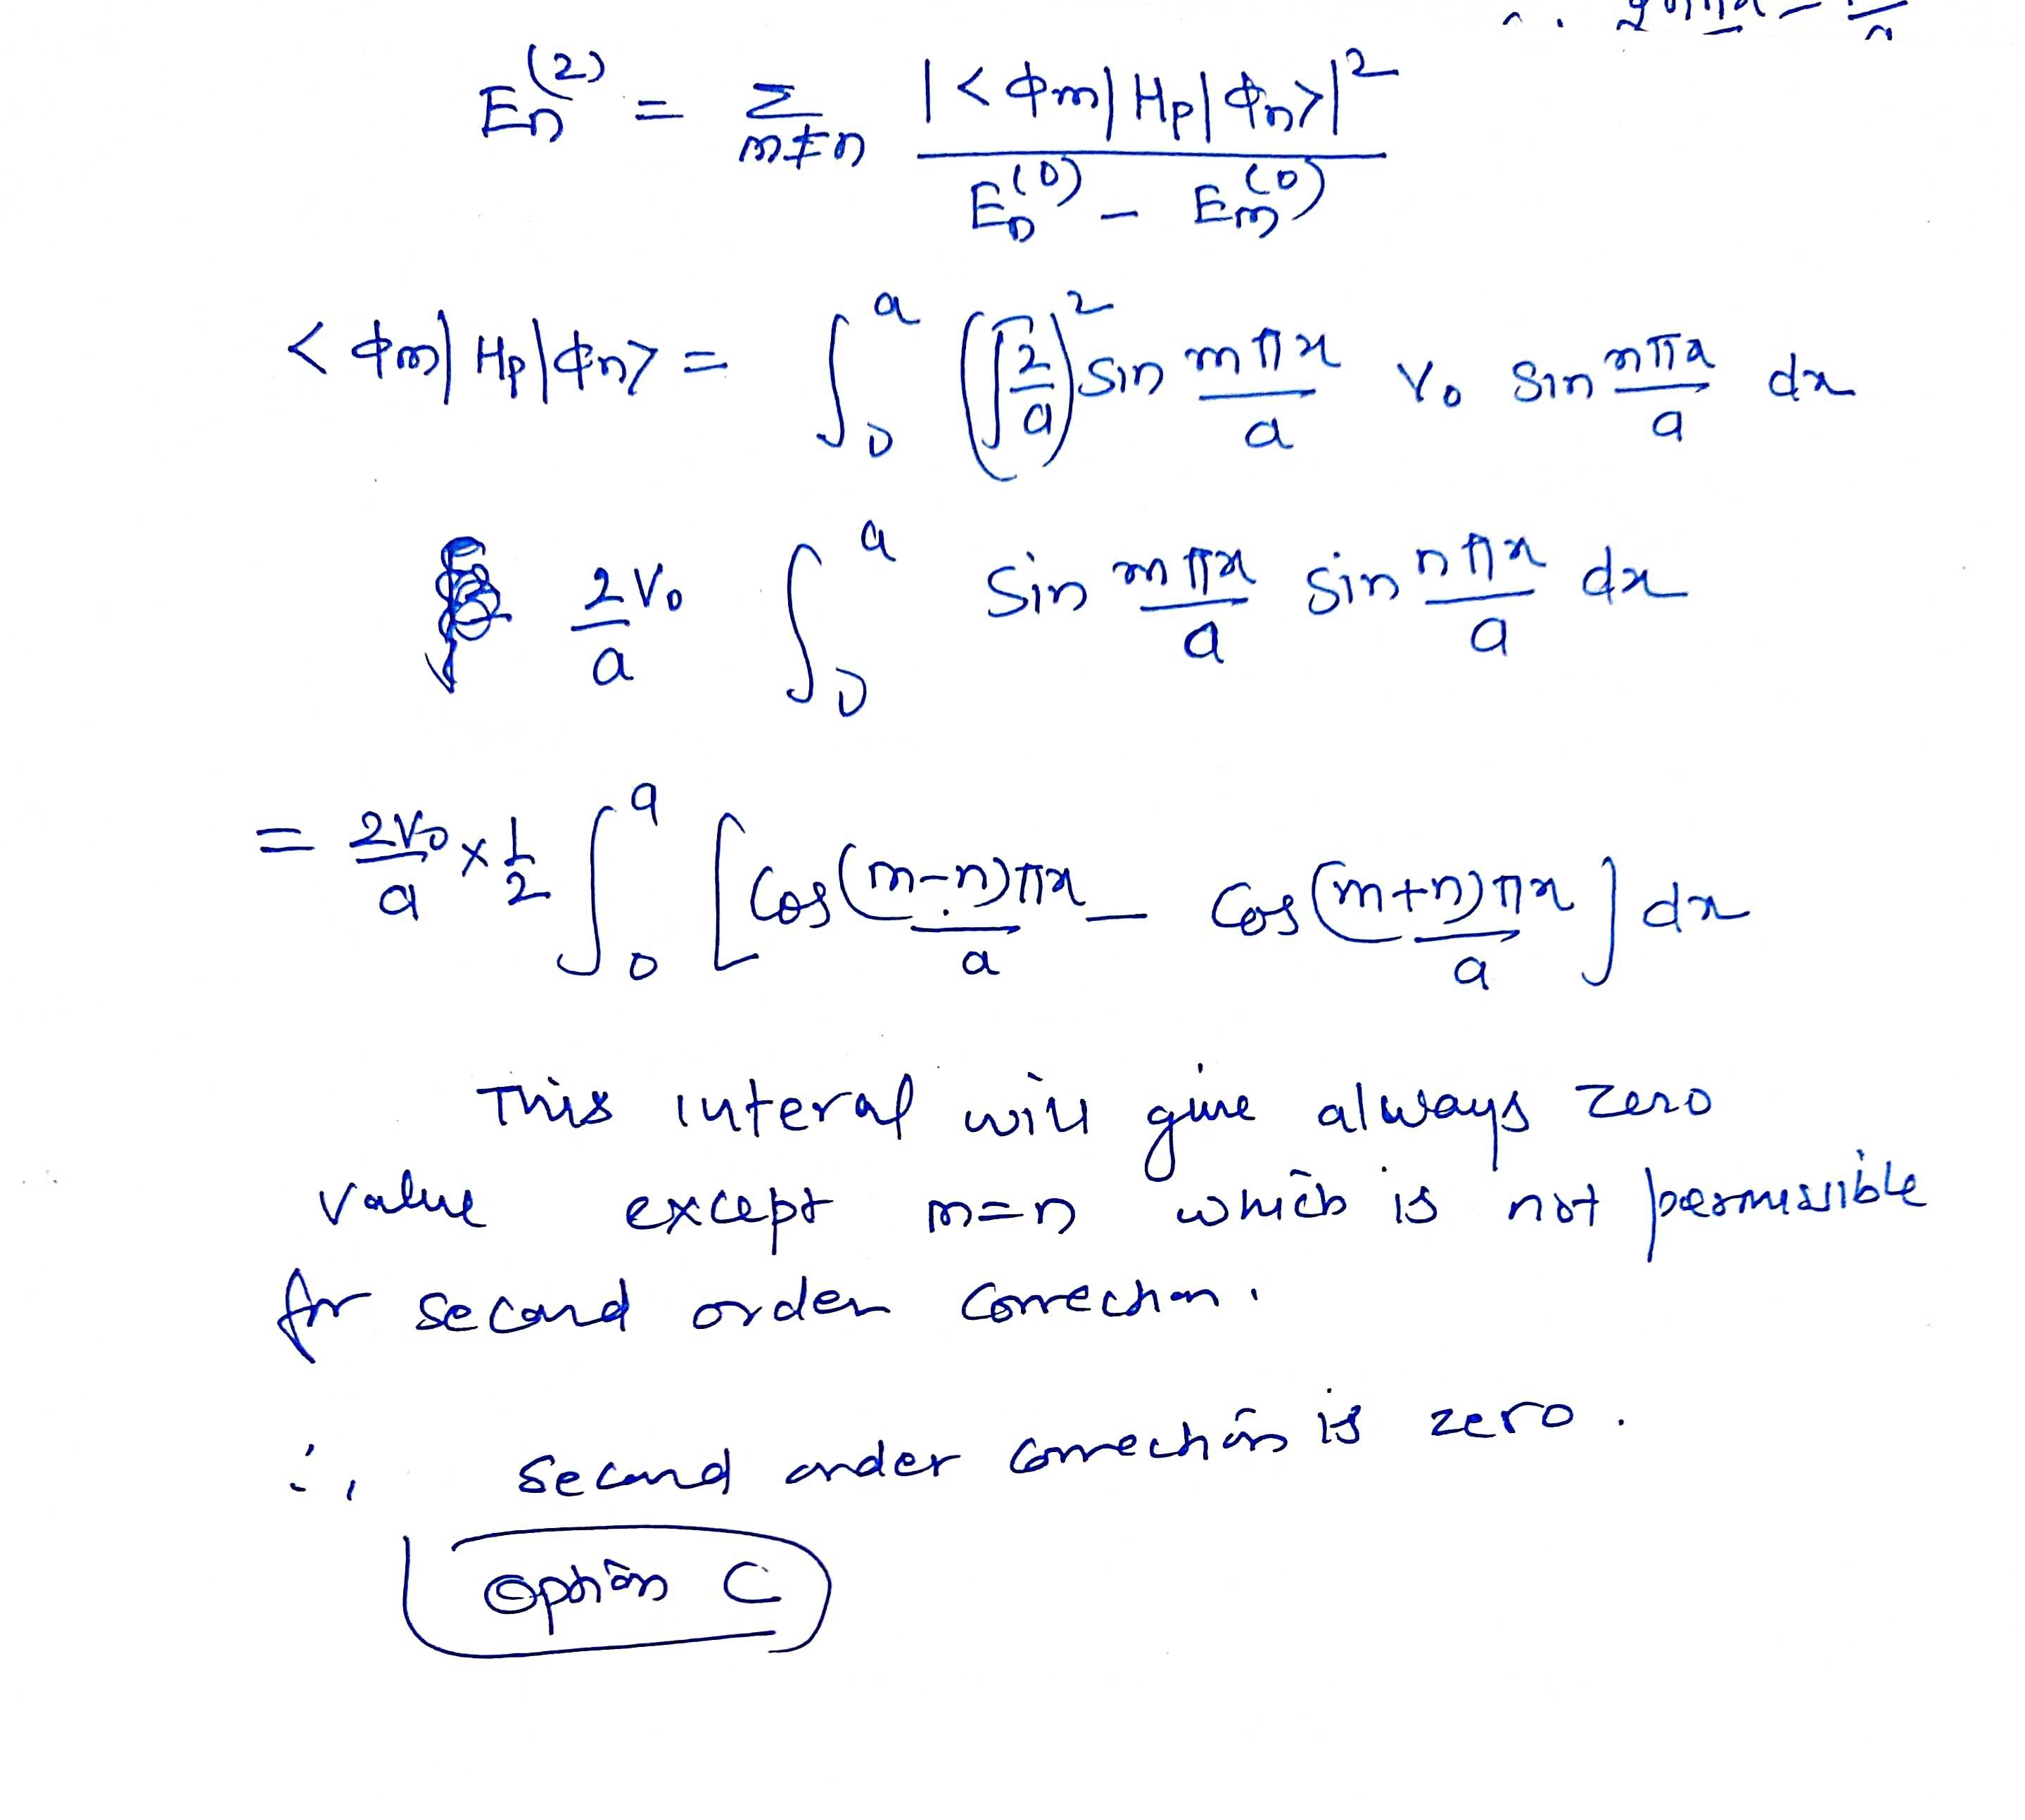 Eₙ⁽²⁾ = Σ_{m≠n} |<ϕm|Hp|ϕn>|² / (Eₙ⁽⁰⁾ − Eₘ⁽⁰⁾)
<ϕm|Hp|ϕn> = ∫₀ᵃ (√(2/a))² sin mπx/a V₀ sin nπx/a dx
2V₀/a ∫₀ᵃ sin mπx/a sin nπx/a dx
= 2V₀/a × 1/2 ∫₀ᵃ [cos (m−n)πx/a − cos (m+n)πx/a] dx
This interal will give always zero
value except m=n which is not permissible
for second order correction.
∴ second order correction is zero.
Option C